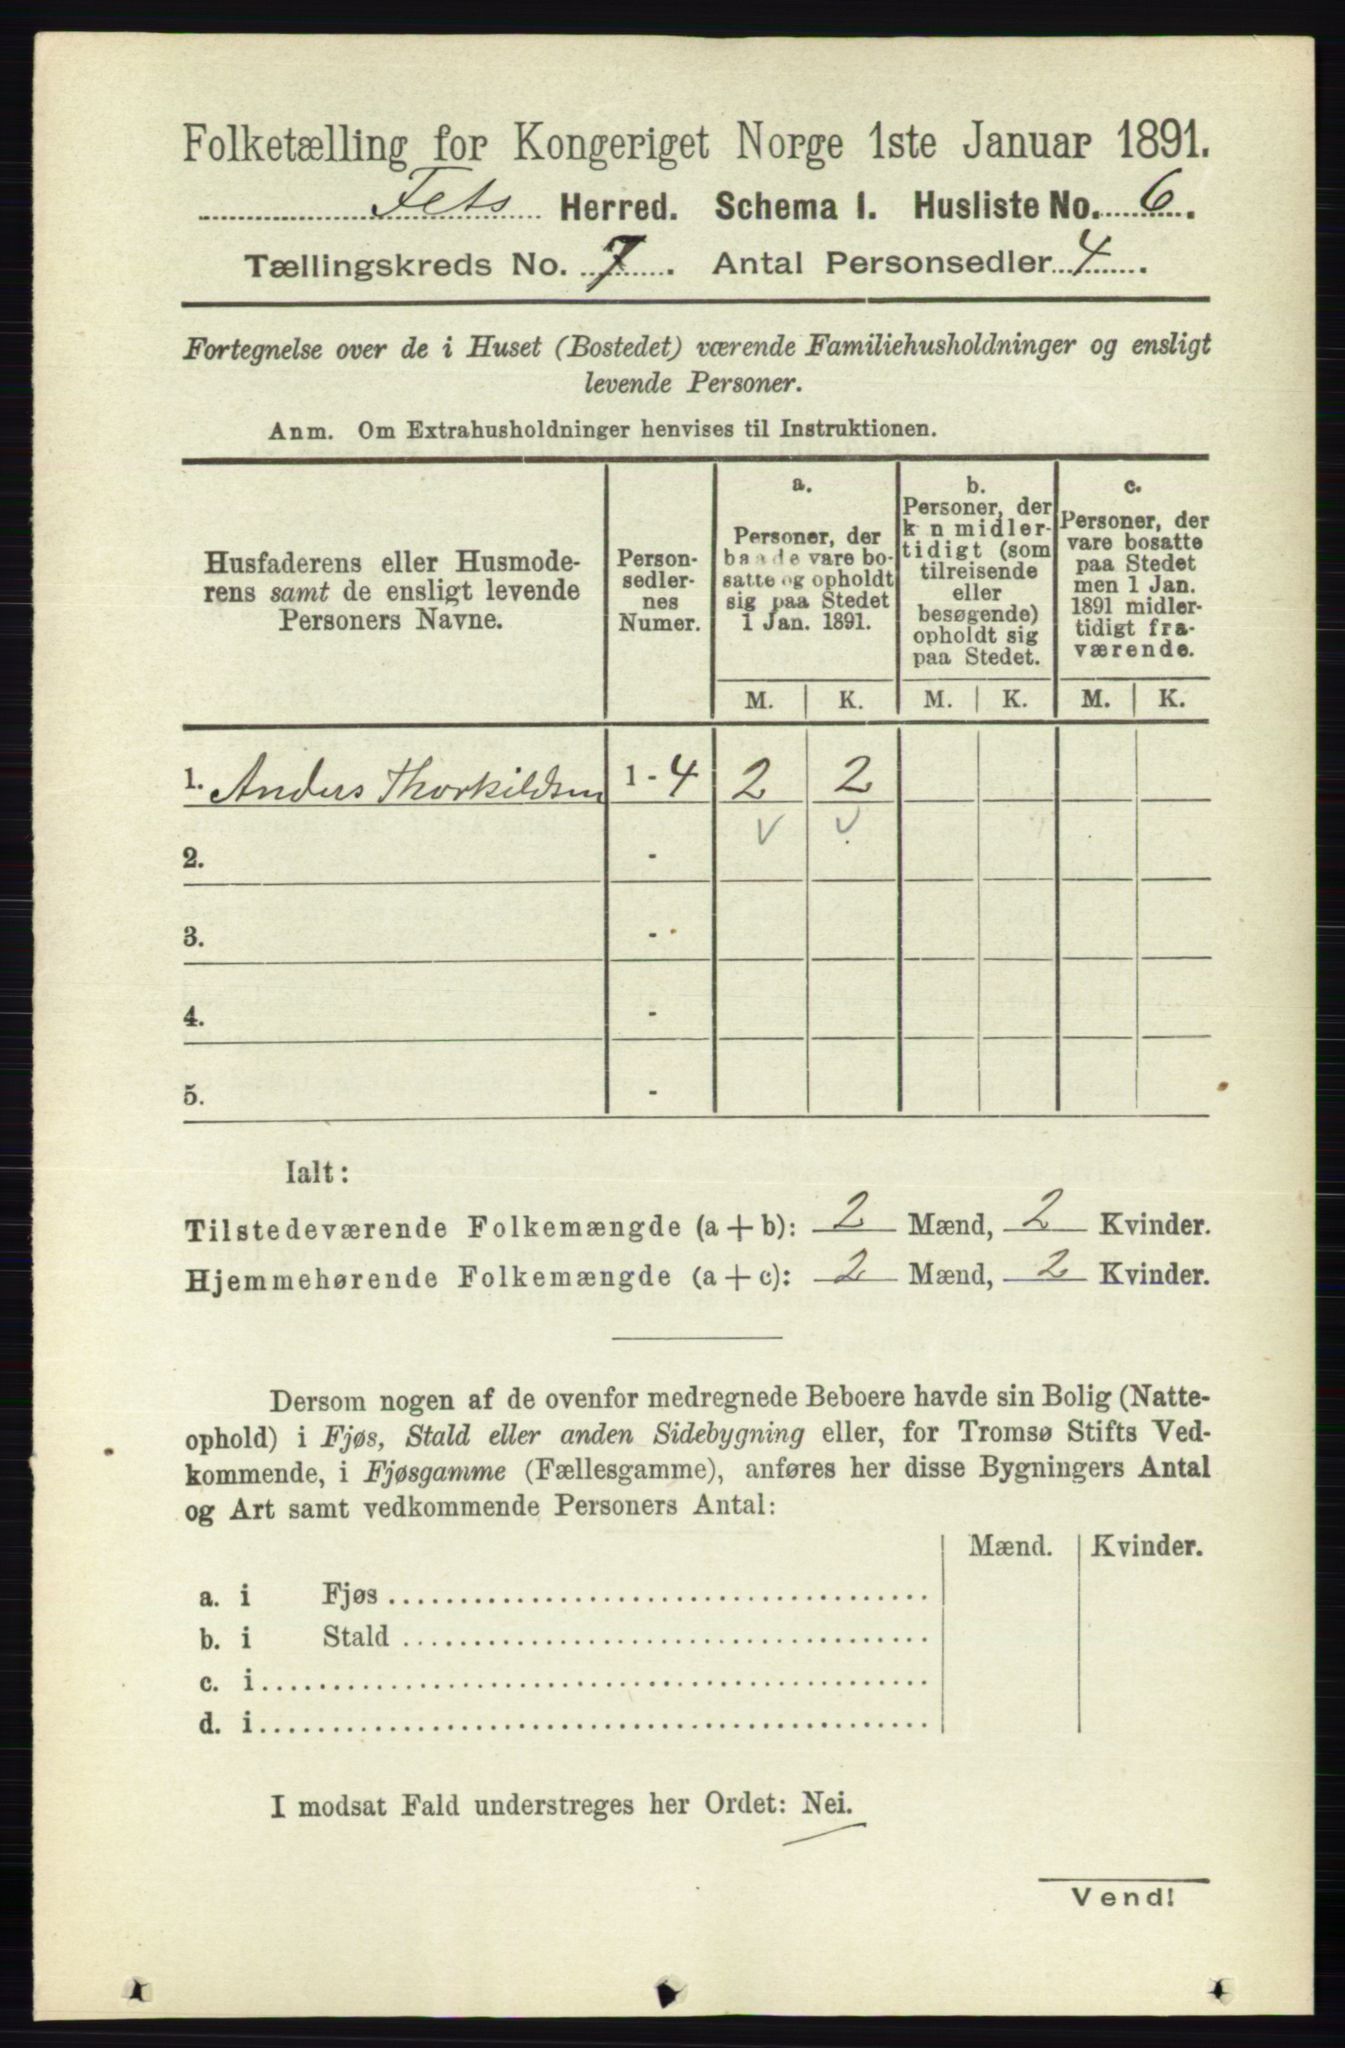 Folketælling for Kongeriget Norge 1ste Januar 1891.
Fets Herred. Schema I. Husliste No. 6.
Tællingskreds No. 7. Antal Personsedler 4.
Fortegnelse over de i Huset (Bostedet) værende Familiehusholdninger og ensligt
levende Personer.
Anm. Om Extrahusholdninger henvises til Instruktionen.
Husfaderens eller Husmode-
rens samt de ensligt levende
Personers Navne.
Person-
sedler-
nes
Numer.
a.
Personer, der
baade vare bo-
satte og opholdt
sig paa Stedet
1 Jan. 1891.
b.
Personer, der
k n midler-
tidigt (som
tilreisende
eller
besøgende)
opholdt sig
paa Stedet.
c.
Personer, der
vare bosatte
paa Stedet
men 1 Jan.
1891 midler-
tidigt fra-
værende.
M. K. M. K. M. K.
1. Anders Thorkildsen 1 - 4 2 2
v v
2. -
3. -
4. -
5. -
Ialt:
Tilstedeværende Folkemængde (a + b): 2 Mænd, 2 Kvinder.
Hjemmehørende Folkemængde (a + c): 2 Mænd, 2 Kvinder.
Dersom nogen af de ovenfor medregnede Beboere havde sin Bolig (Natte-
ophold) i Fjøs, Stald eller anden Sidebygning eller, for Tromsø Stifts Ved-
kommende, i Fjøsgamme (Fællesgamme), anføres her disse Bygningers Antal
og Art samt vedkommende Personers Antal:
Mænd. Kvinder.
a. i Fjøs
b. i Stald
c. i
d. i
I modsat Fald understreges her Ordet: Nei.
Vend!